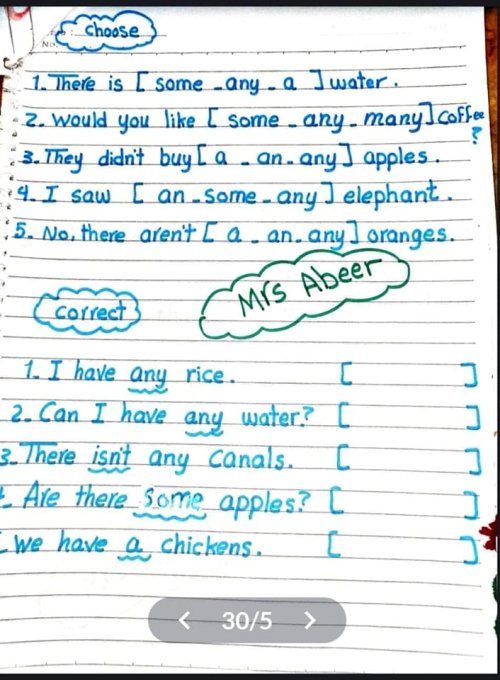 Choose
No.
1. There is [ some - any - a ] water.
2. Would you like [ some - any - many ] coffee
?
3. They didn't buy [ a - an - any ] apples.
4. I saw [ an - some - any ] elephant.
5. No, there aren't [ a - an - any ] oranges.
Mrs Abeer
Correct
1. I have any rice. [ ]
2. Can I have any water? [ ]
3. There isn't any canals. [ ]
Are there some apples? [ ]
We have a chickens. [ ]
< 30/5 >